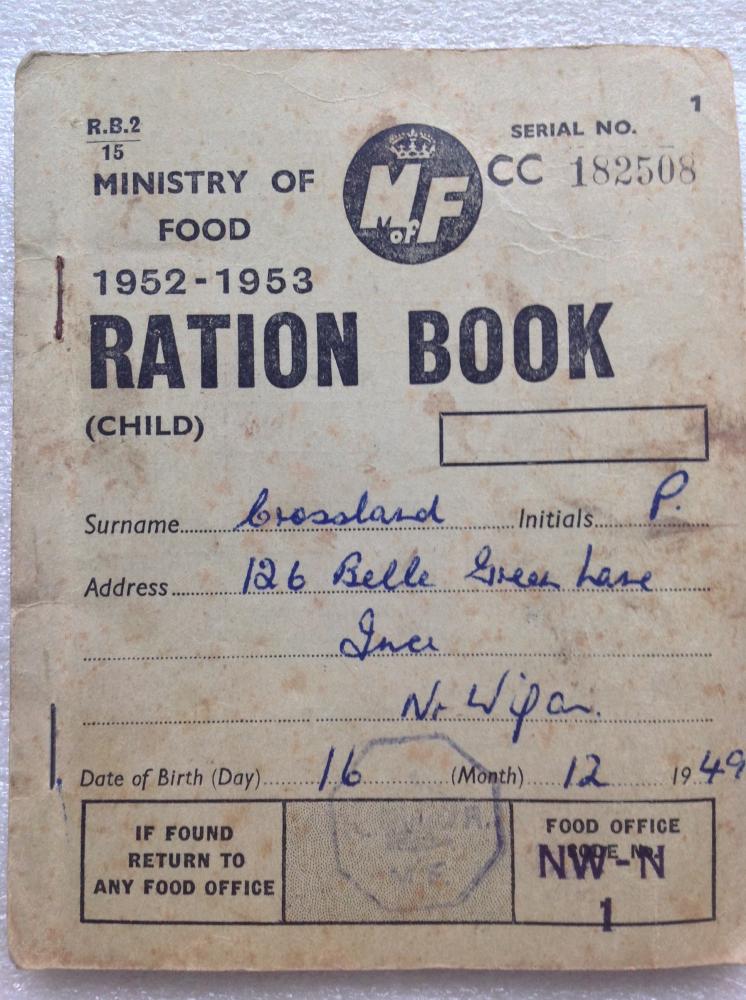 1
R.B.2
15
SERIAL NO.
CC 182508
MINISTRY OF
FOOD
M of F
1952-1953
RATION BOOK
(CHILD)
Surname Crossland Initials P.
Address 126 Belle Green Lane
Ince
Nr Wigan.
Date of Birth (Day) 16 (Month) 12 1949
IF FOUND
RETURN TO
ANY FOOD OFFICE
FOOD OFFICE
CODE No.
NW-N
1